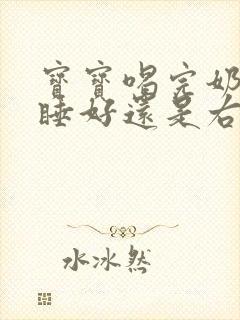 寶寶喝完奶
睡好還是右
水冰然